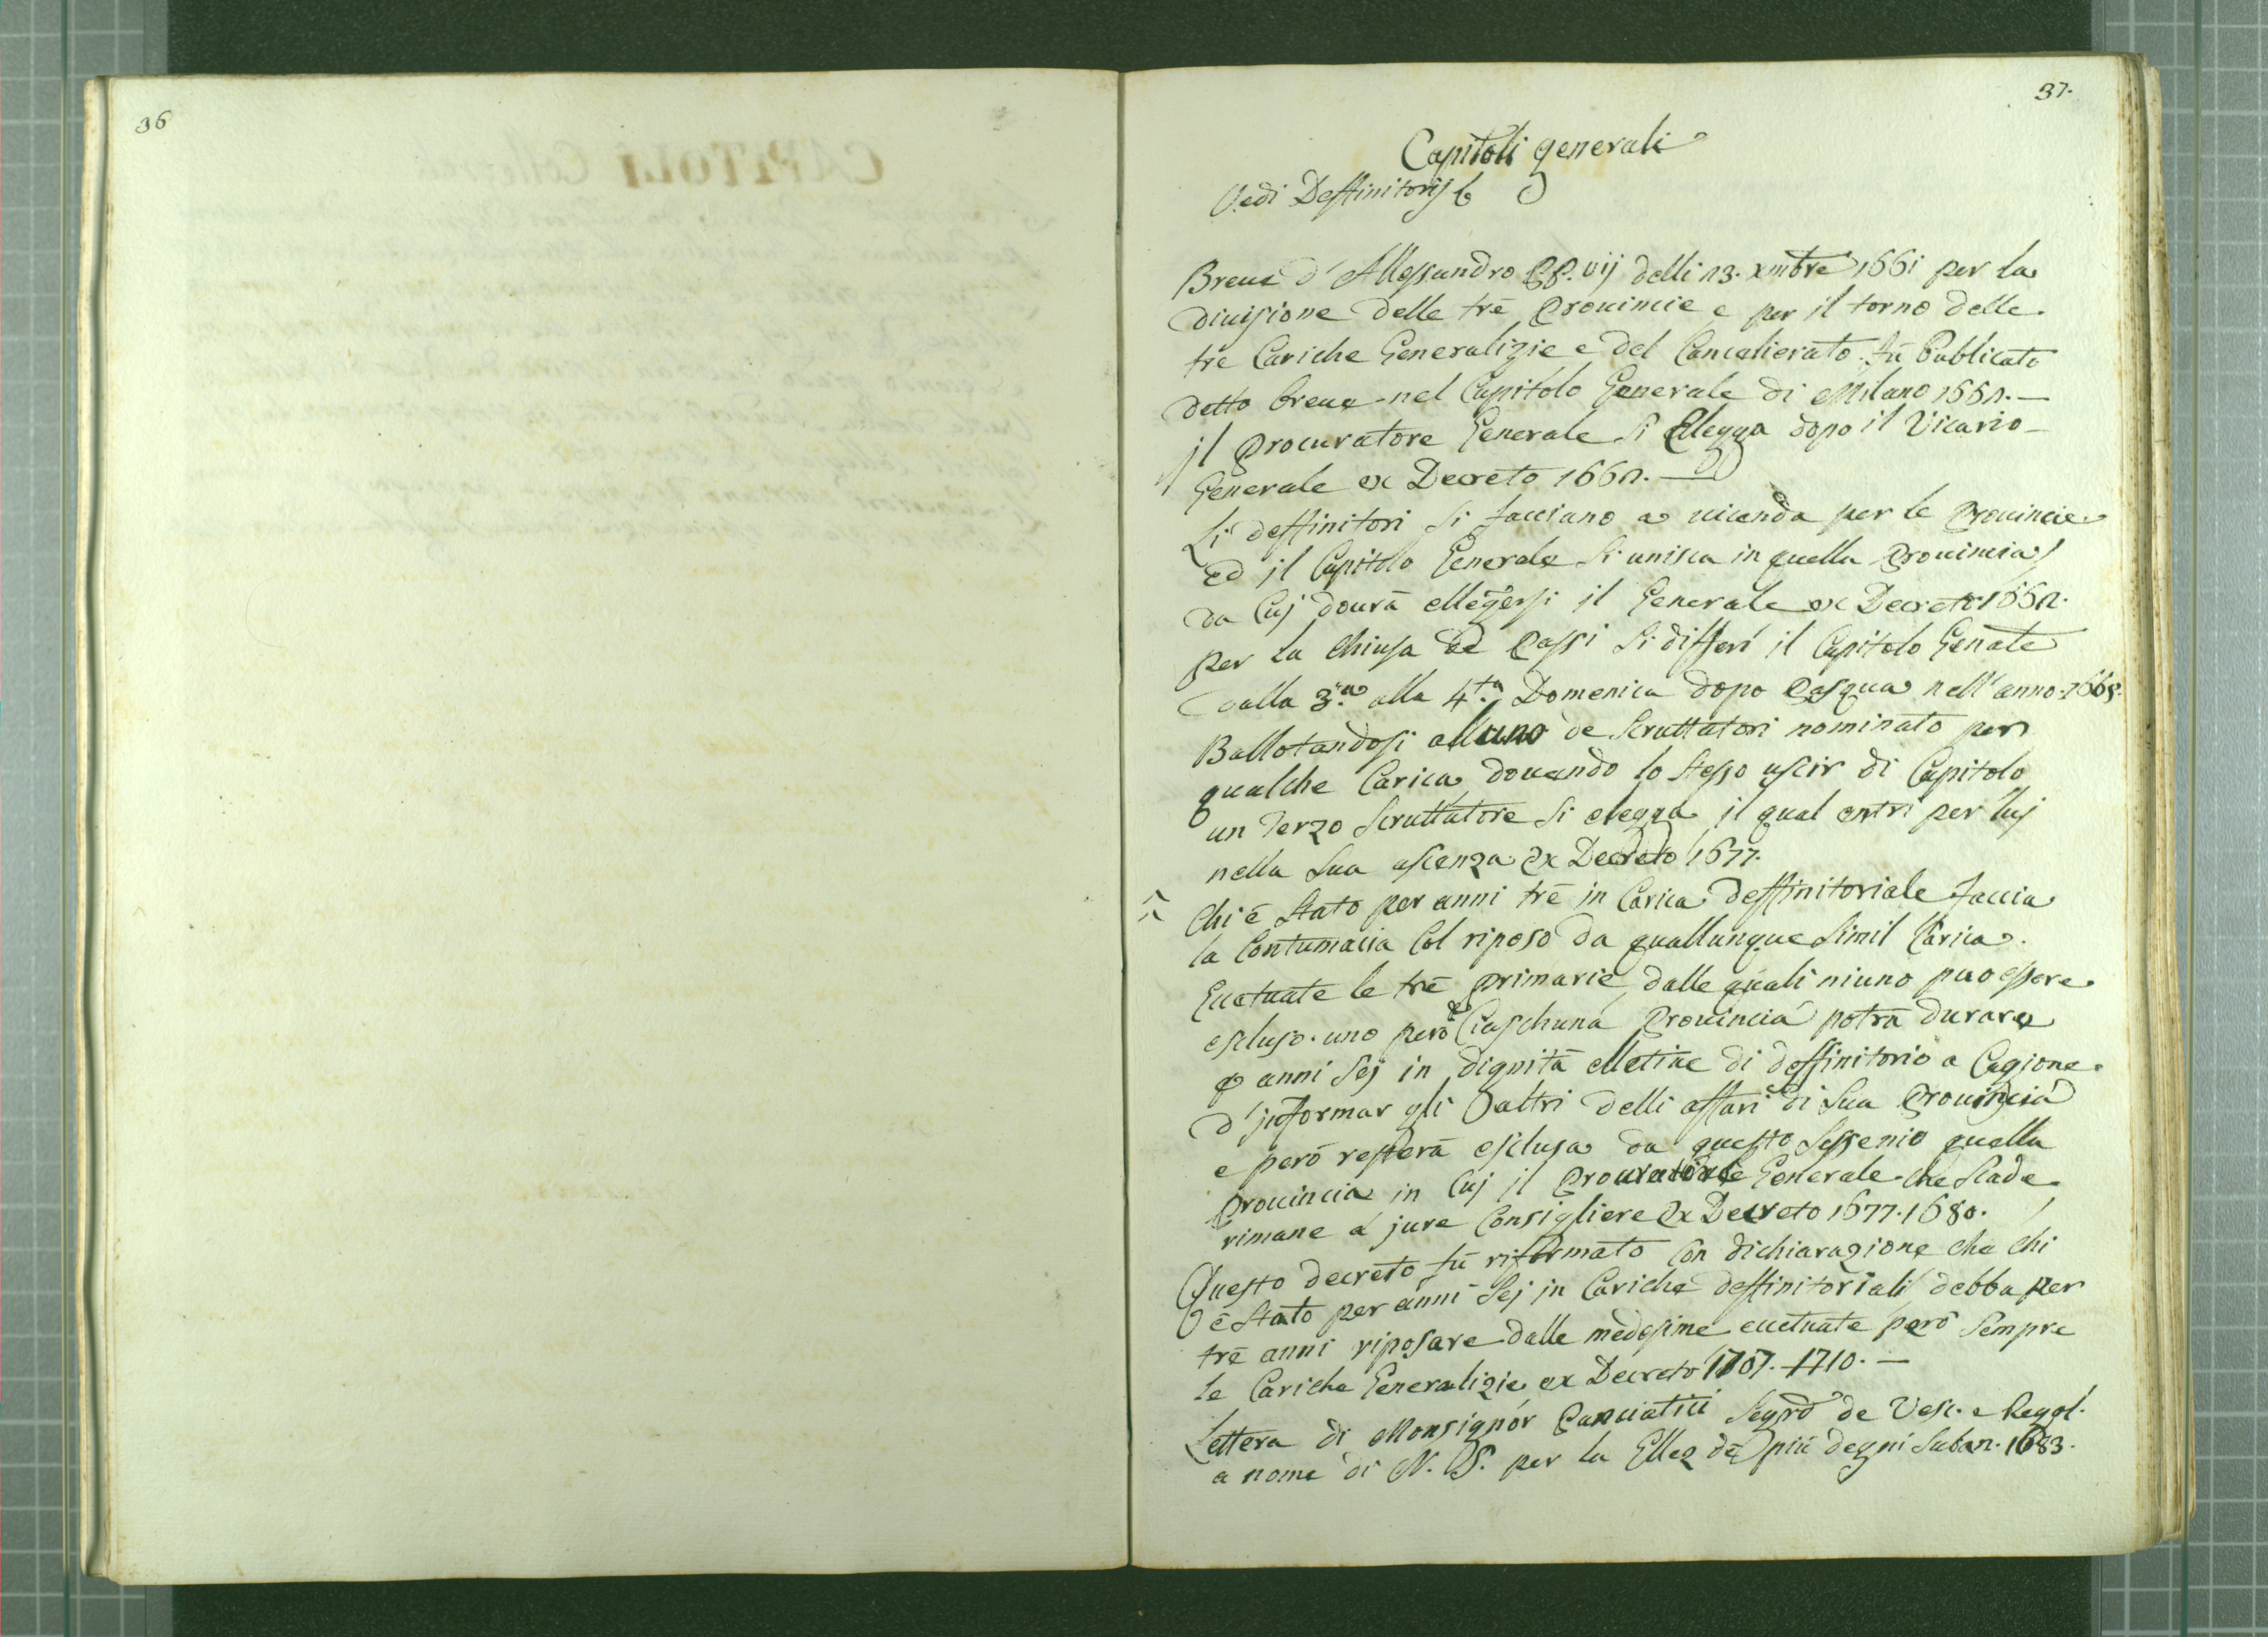 36
37.
Capitoli generali
Vedi Deffinitorij
Breue d'Allessandro PP. vij delli 13. xmbre 1661 per la
diuisione delle trē Prouincie e per il torno delle
trē Cariche Generalizie e del Cancelierato. fū Publicato
detto breue nel Capitolo Generale di Milano 1662.
jl Procuratore Generale si Ellegga dopo il Vicario
Generale ex Decreto 1662.
Li deffinitori si facciano a uicenda per le Prouincie
ed il Capitolo Generale si unisca in quella Prouincia
da Cuj dourā ellegersi il Generale ex Decreto 1662.
per la Chiusa de Passi si differi il Capitolo Genale
dalla 3.a alla 4.ta Domenica dopo Pasqua nell'anno 1668.
Ballotandosi alluno de Scruttatori nominato per
qualche Carica douendo lo stesso uscir di Capitolo
un Terzo Scruttatore si elegga il qual entri per luj
nella sua assenza ex Decreto 1677.
Chi ē Stato per anni trē in Carica deffinitoriale faccia
la Contumacia Col riposo da quallunque simil Carica.
Ecetuate le trē primarie dalle quali niuno puo essere
escluso. uno però Ciaschuna Prouincia potrā durare
anni sej in dignitā elletiue di deffinitorio a Cagione
d'jnformar gli altri delli affari di sua Prouincia
e però resterā esclusa da questo sessenio quella
Prouincia in Cuj il Procuratore Generale che scade
rimane a jure Consigliere ex Decreto 1677. 1680.
Questo decreto fū riformato con dichiarazione che chi
ē Stato per anni sej in Cariche deffinitoriali debba per
trē anni riposare dalle medesime ecetuate però sempre
le Cariche Generalizie ex Decreto 1707. 1710.
Lettera di Monsignor Panciatici Segrō de Vesc. e Regol.
a nome di N. S. per la Ellez de più degni suban. 1683.